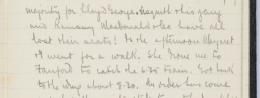 majority for Lloyd George, Asquith & his gang
and Ramsay Macdonald who have all
lost their seats! In the afternoon Margaret
& I went for a walk. She drove me to
to catch the 6.35 train. Got back
to the about 8.30. An order has come